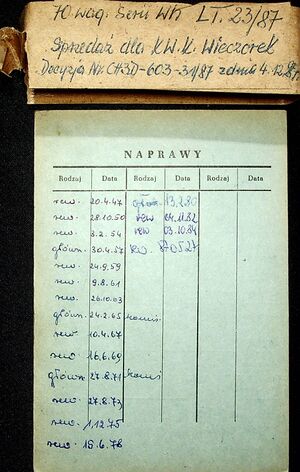 70 wag. Serii Wh LT. 23/87
Sprzedaż dla KW.K. Wieczorek
Decyzja Nr. CH3D-603-31/87 z dnia 4.12.87
NAPRAWY
Rodzaj Data Rodzaj Data Rodzaj Data
rew. 20.4.47 główn. 13.2.80
rew. 28.10.50 rew 04.11.82
rew. 8.2.54 rew 03.10.84
główn. 30.4.57 rew. 870527
rew. 24.9.59
rew. 9.8.61
rew. 26.10.63
główn. 24.2.65
rew 10.4.67
rew 16.6.69
główn 27.8.71
rew. 27.8.73
rew. 1.12.75
rew. 19.6.78